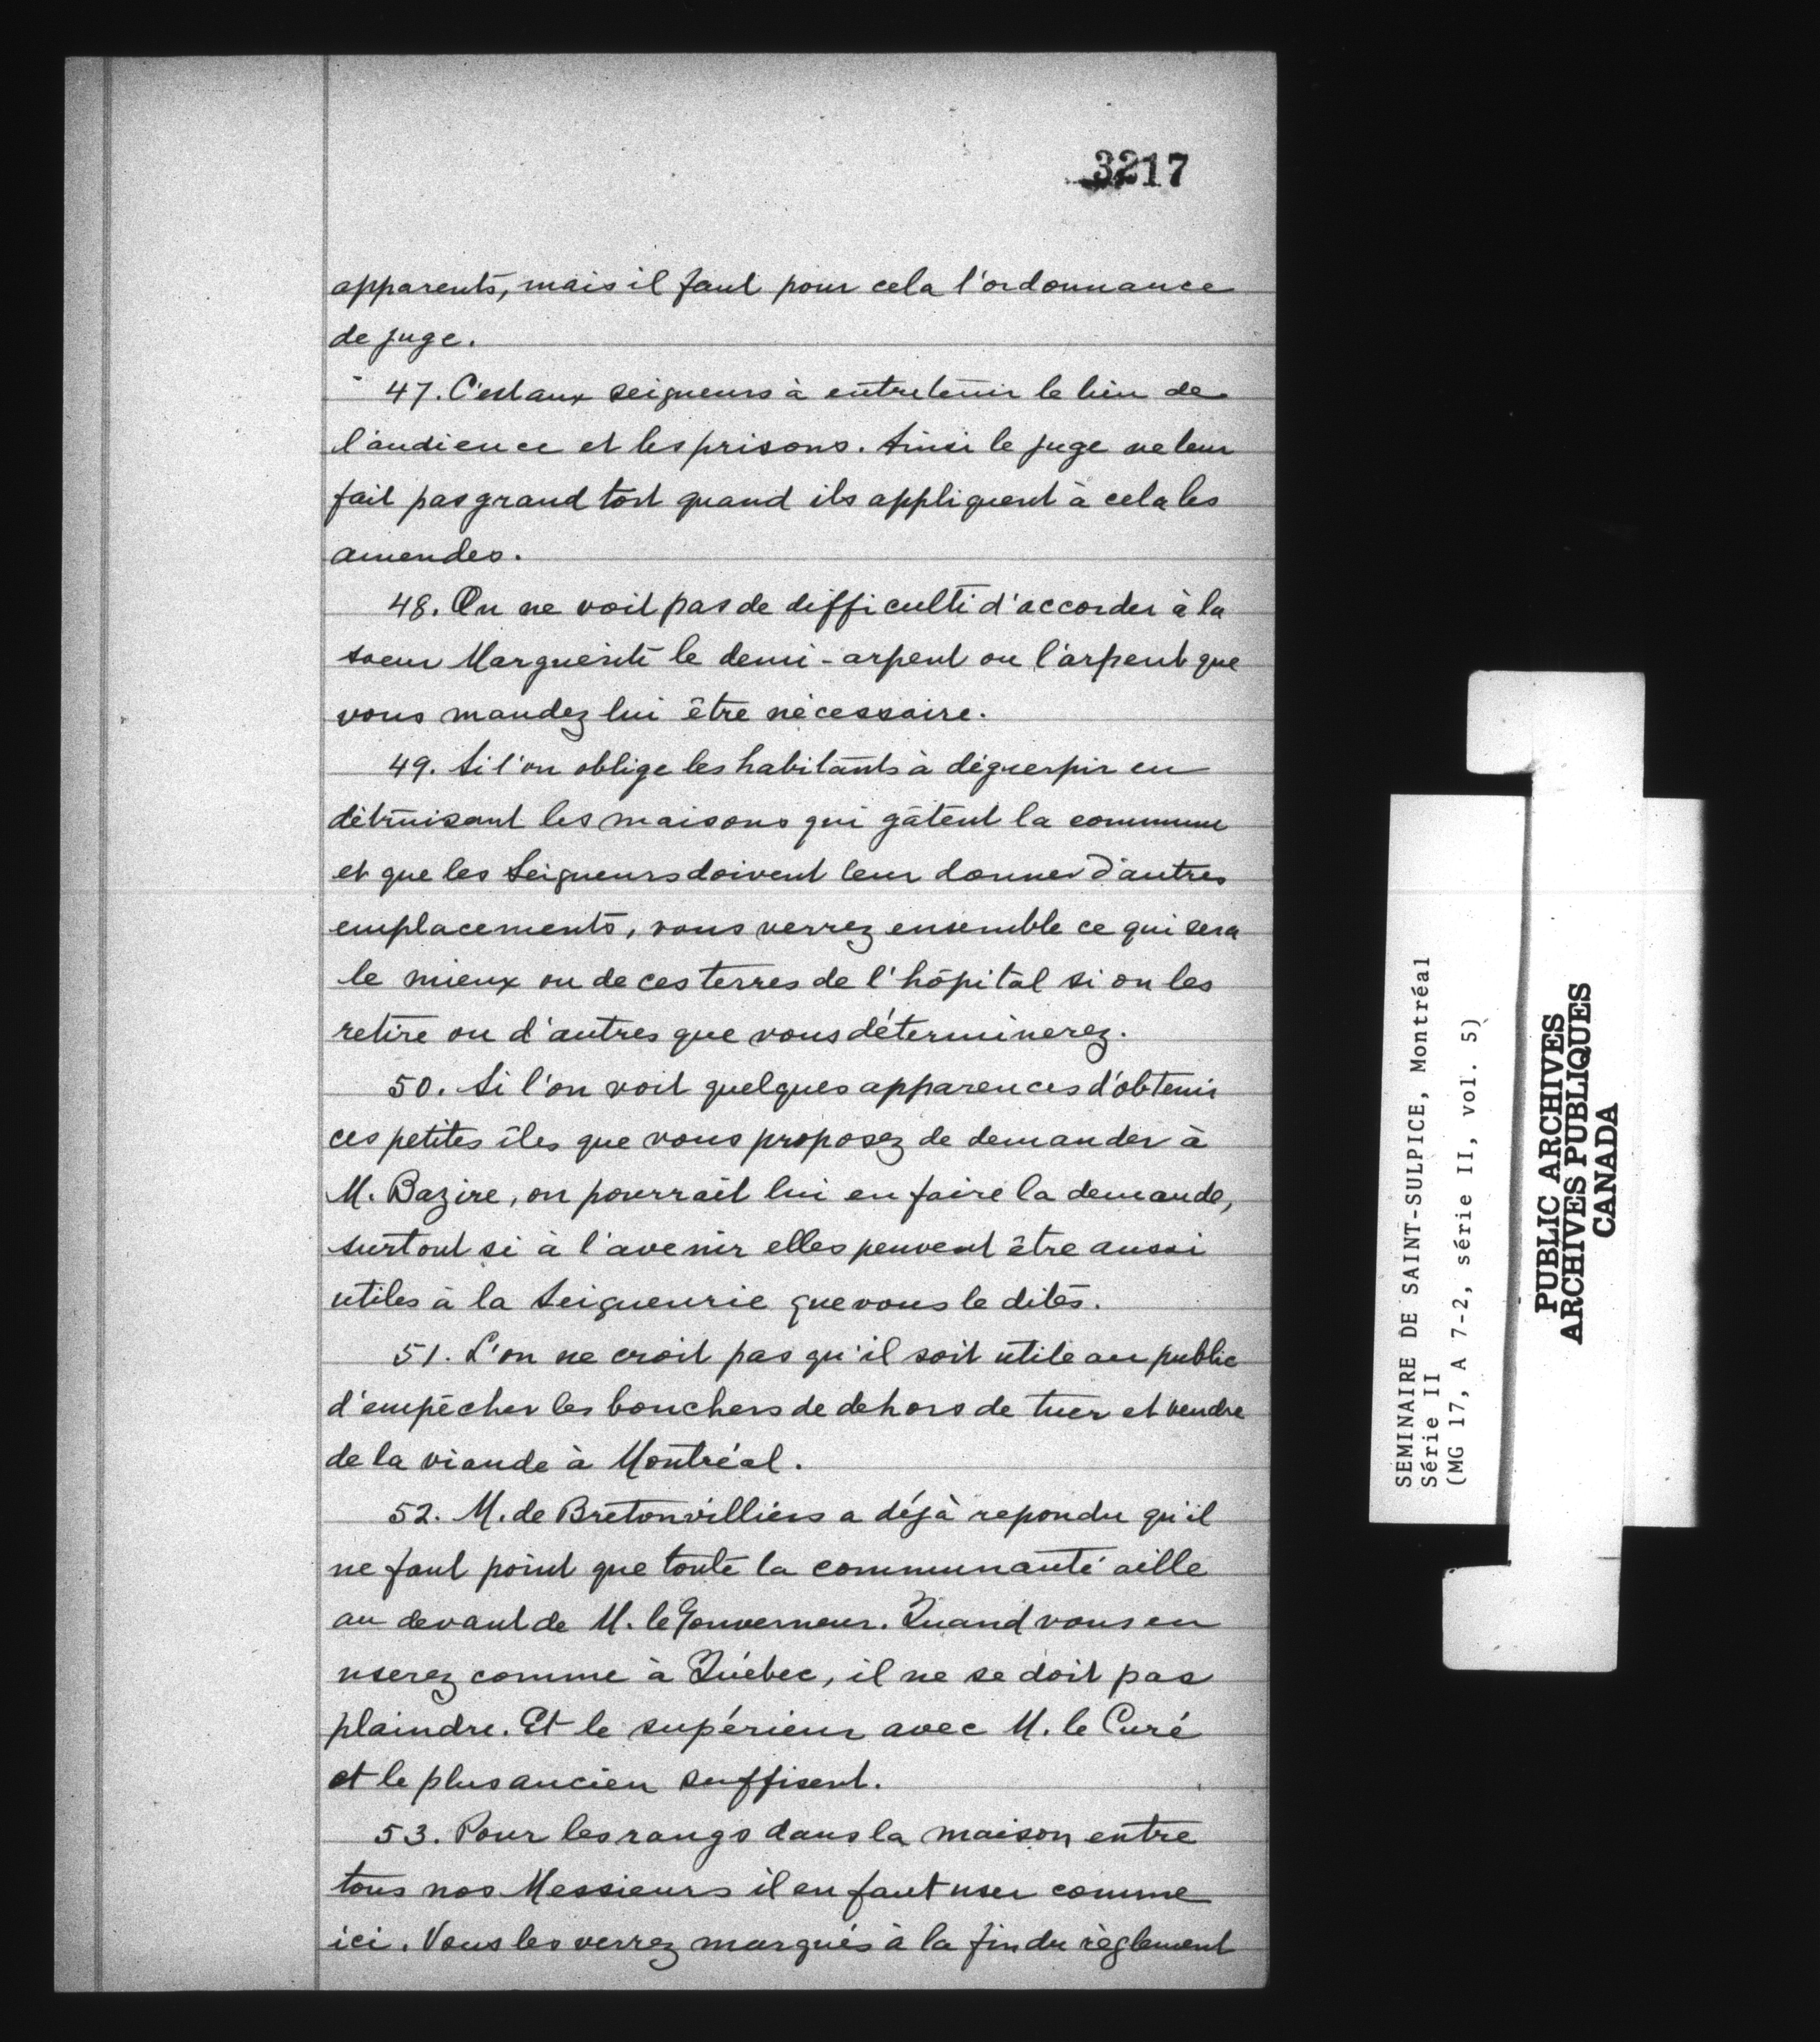 3217
apparents, mais il faut pour cela l'ordonnance
de juge.
47. C'est aux seigneurs à entretenir le lieu de
l'audience et les prisons. Ainsi le juge ne leur
fait pas grand tort quand ils appliquent à cela les
amendes.
48. On ne voit pas de difficulté d'accorder à la
soeur Marguerite le demi-arpent ou l'arpent que
vous mandez lui être nécessaire.
49. Si l'on oblige les habitants à déguerpir en
détruisant les maisons qui gâtent la commune
et que les Seigneurs doivent leur donner d'autres
emplacements, vous verrez ensemble ce qui sera
le mieux ou de ces terres de l'hôpital si on les
retire ou d'autres que vous déterminerez.
50. Si l'on voit quelques apparences d'obtenir
ces petites îles que vous proposez de demander à
M. Bazire, on pourrait lui en faire la demande,
surtout si à l'avenir elles peuvent être aussi
utiles à la Seigneurie que vous le dites.
51. L'on ne croit pas qu'il soit utile au public
d'empêcher les bouchers de dehors de tuer et vendre
de la viande à Montréal.
52. M. de Bretonvilliers a déjà repondu qu'il
ne faut point que toute la communauté aille
au devant de M. le Gouverneur. Quand vous en
userez comme à Québec, il ne se doit pas
plaindre. Et le supérieur avec M. le Curé
et le plus ancien suffisent.
53. Pour les rangs dans la maison entre
tous nos Messieurs il en faut user comme
ici. Vous les verrez marqués à la fin du règlement
SEMINAIRE DE SAINT-SULPICE, Montréal
Série II
(MG 17, A 7-2, série II, vol. 5)
PUBLIC ARCHIVES
ARCHIVES PUBLIQUES
CANADA